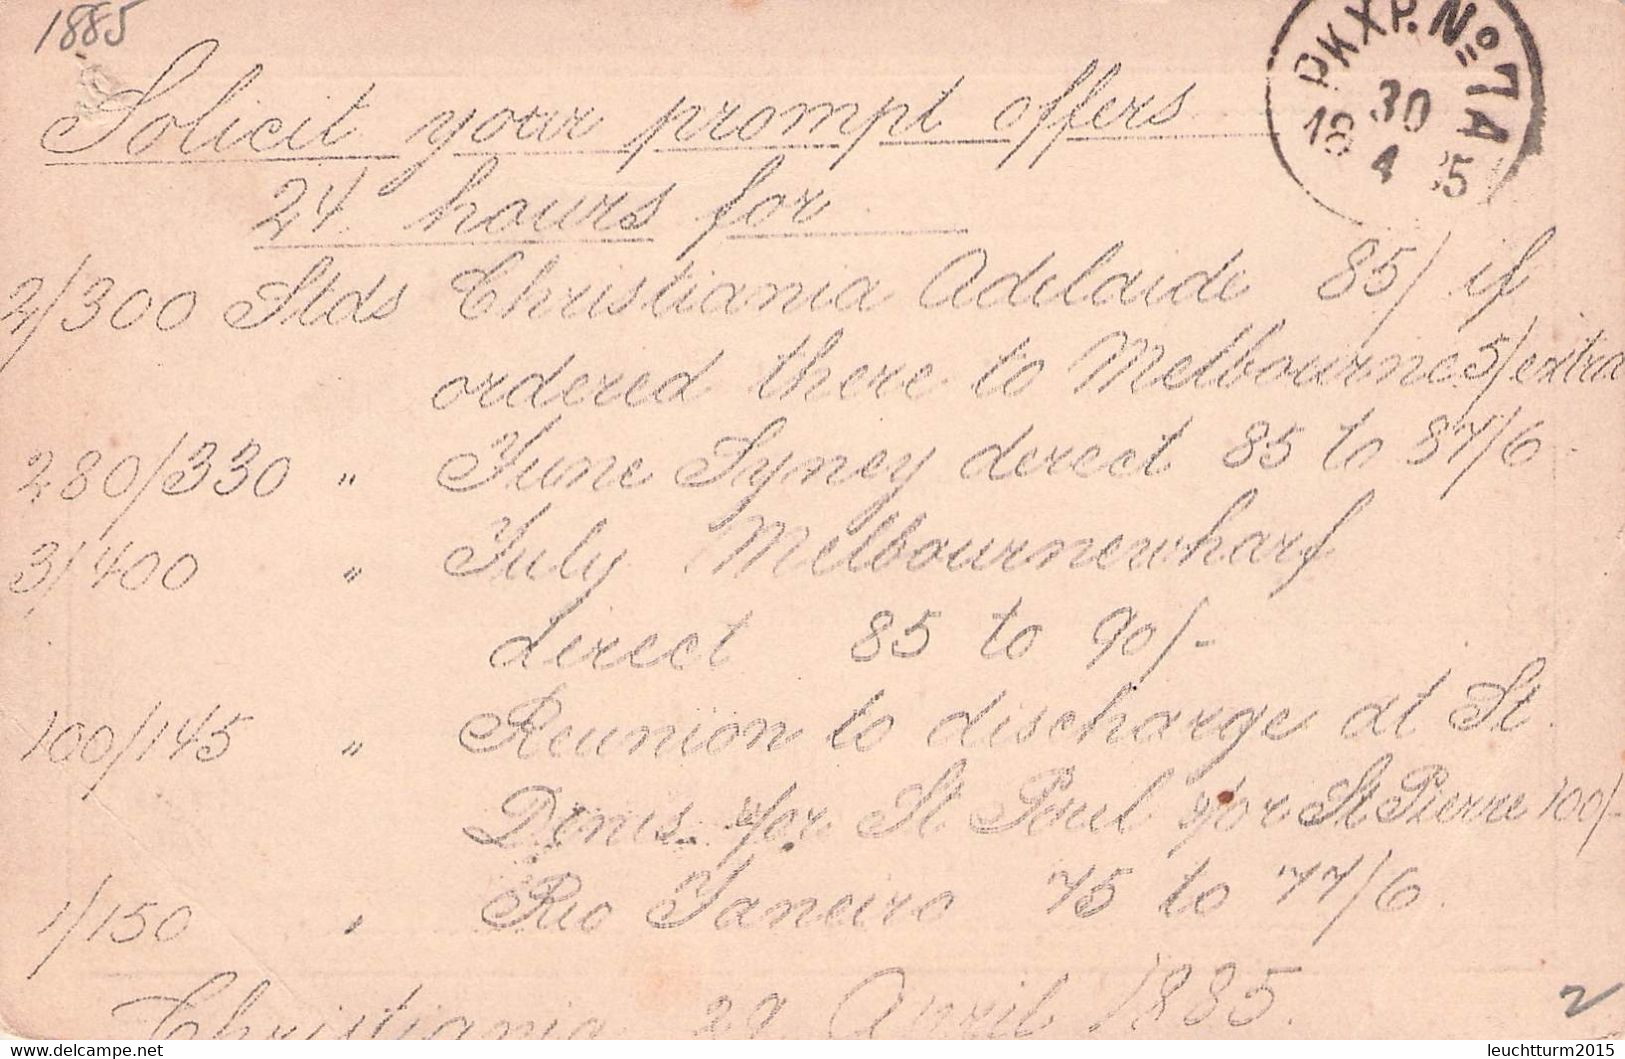 1885
PKXP. No 7A
30
18 4 85
Solicit your prompt offers
24 hours for
2/300 Stds Christiania Adelaide 85/ if
ordered there to Melbourne 5/ extra
280/330 " June Syney derect 85 to 87/6
3/400 " July Melbournewharf
direct 85 to 90/-
100/145 " Reunion to discharge at St.
Denis &/or St Poul &/or St Pierre 100/-
1/150 " Rio Janeiro 75 to 77/6.
Christiania 29. April 1885.
2
leuchtturm2015